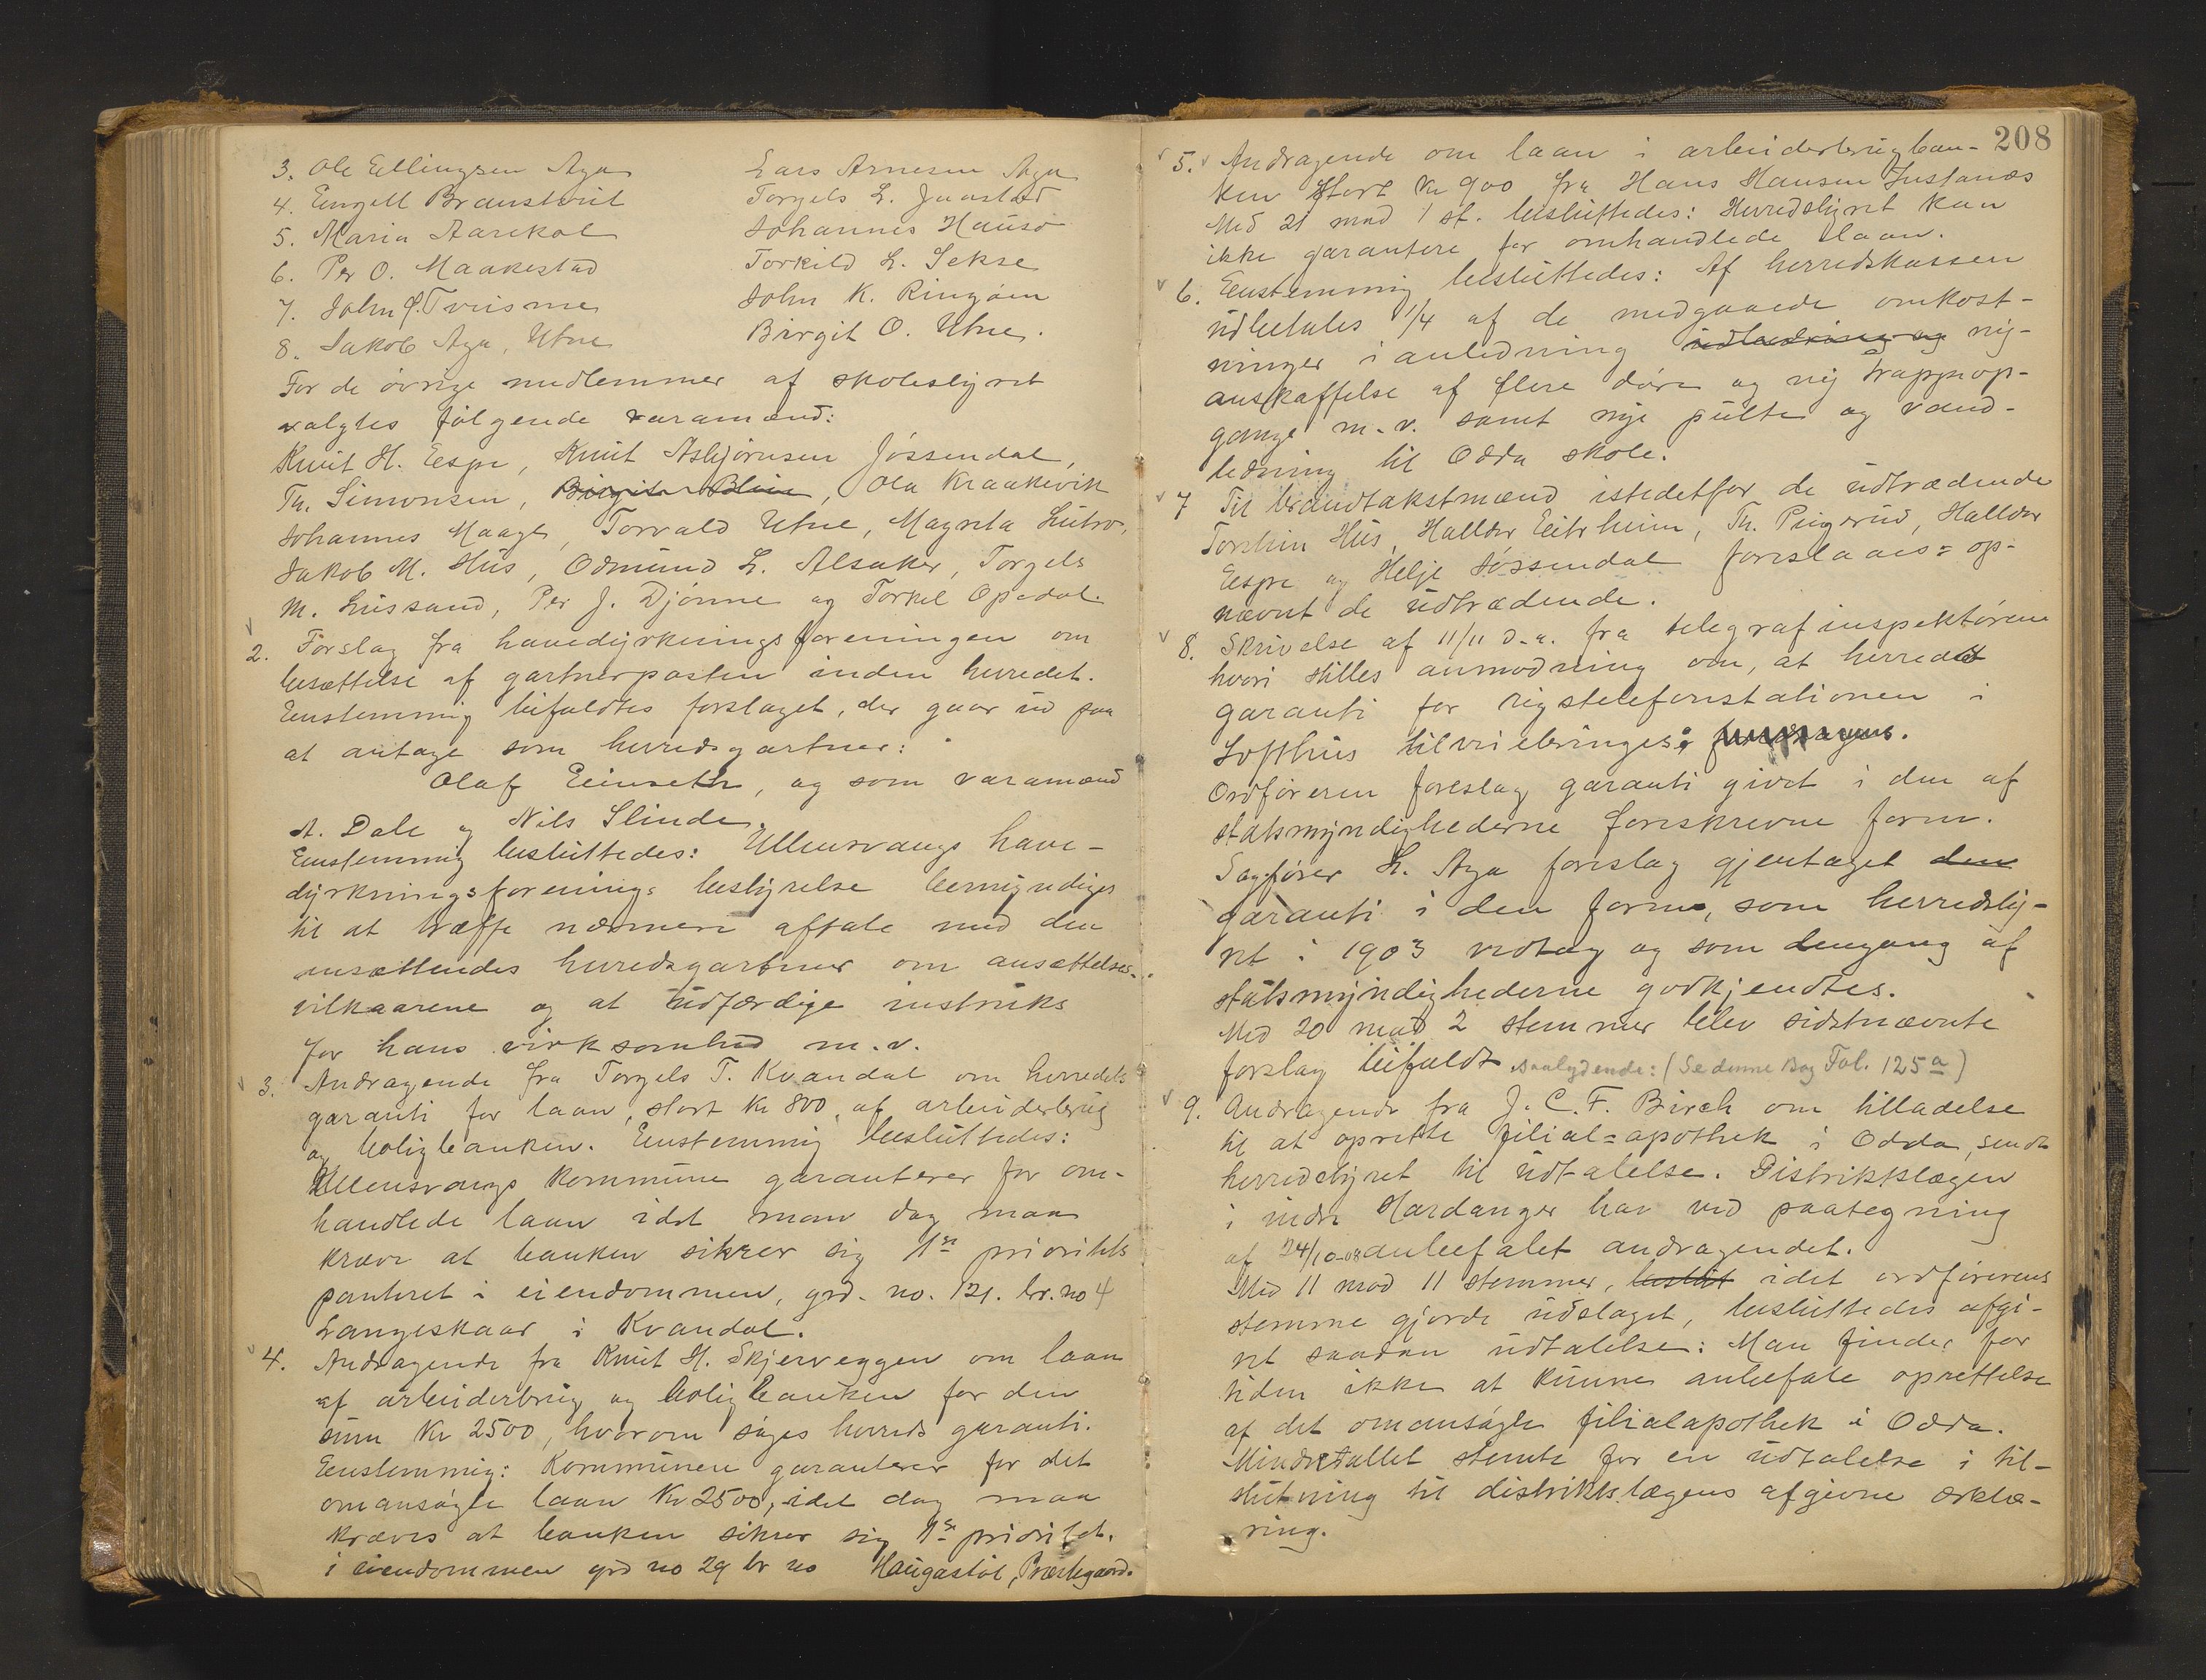 3. Ole Ellingsen Aga Lars Arnesen Aga
4. Engell Braustveit Torgels L. Jaastad
5. Maria Aarekol Johannes Hauso
6. Per O. Maakestad Torkild L. Sekse
7. John J. Tveisme John K. Ringøen
8. Jakob Aga, Utne Birgit O. Utne.
For de øvrige medlemmer af skolestyret
valgtes følgende varamænd:
Knut H. Espe, Knut Asbjørnsen Jøssendal,
Th. Simonsen, Birgit Blie, Ola Kraakevik
Johannes Maage, Torvald Utne, Magnta Lutro,
Jakob M. Hus, Odmund L. Alsaker, Torgels
M. Lussand, Per J. Djønne og Torkel Opedal.
2. Forslag fra havedyrkningsforeningen om
besættelse af gartnerposten inden herredet.
Enstemmig bifaldtes forslaget, der gaar ud paa
at antage som herredsgartner:
Olaf Eimseth, og som varamænd
A. Dale og Nils Slinde.
Enstemmig besluttedes: Ullensvangs have-
dyrkningsforenings bestyrelse bemyndiges
til at træffe nærmere aftale med den
ansættendes herredsgartner om ansættelses-
vilkaarene og at udfærdige instruks
for hans virksomhed m.v.
3. Andragende fra Torgels T. Kvandal om herredets
garanti for laan, stort Kr 800, af arbeiderbrug
og boligbanken. Enstemmig besluttedes:
Ullensvangs kommune garanterer for om-
handlede laan idet man dog maa
kræve at banken sikrer sig 1ste prioritets
panteret i eiendommen, grd. no. 121. br. no 4
Langeskaar i Kvandal.
4. Andragende fra Knut H. Skjerveggen om laan
af arbeiderbrug og boligbanken for den
sum Kr 2500, hvorom søges herreds garanti.
Enstemmig: Kommunen garanterer for det
omansøgte laan Kr 2500, idet dog maa
kræves at banken sikrer sig 1ste prioritet.
i eiendommen grd no 29 br no Haugastøl, Præstegaard.
208
5. Andragende om laan i arbeiderbrugban-
ken stort Kr 900 fra Hans Hansen Instanæs
Med 21 mod 1 st. besluttedes: Herredstyret kan
ikke garantere for omhandlede laan.
6. Enstemmig besluttedes: Af herredskassen
udbetales 1/4 af de medgaaede omkost-
ninger i anledning udbedring og ny-
anskaffelse af flere døre og ny trappeop-
gange m.v. samt nye pulte og vand-
ledning til Odda skole.
7 Til brandtakstmænd istedetfor de udtrædende
Torstein Hus, Halldor Eitrheim, Th. Pingerud, Halldor
Espe og Helje Jøssendal foreslaaes op-
nævnt de udtrædende.
8. Skrivelse af 11/11 d.a. fra telegrafinspektøren
hvori stilles anmodning om, at herredet
garanti for rigstelefonstationen i
Lofthus tilveiebringes.
Ordføreren foreslog garanti givet i den af
statsmyndighederne foreskrevne form.
Sagfører L. Aga foreslog gjentaget den
garanti i den form, som herredsty-
ret i 1903 vedtog og som dengang af
statsmyndighederne godkjendtes.
Med 20 mod 2 stemmer blev sidstnævnte
forslag bifaldt saalydende: (Se denne Bog Fol. 125 a)
9. Andragende fra J. C. F. Birch om tilladelse
til at oprette filial=apothek i Odda, sendt
herredstyret til udtalelse. Distriktslægen
i indre Hardanger har ved paategning
af 24/10-08 anbefalet andragendet.
Med 11 mod 11 stemmer, beslut idet ordførerens
stemme gjorde udslaget, besluttedes afgi-
vet saadan udtalelse: Man finder for
tiden ikke at kunne anbefale oprettelse
af det omansøgte filialapothek i Odda.
Mindretallet stemte for en udtalelse i til-
slutning til distriktslægens afgivne erklæ-
ring.